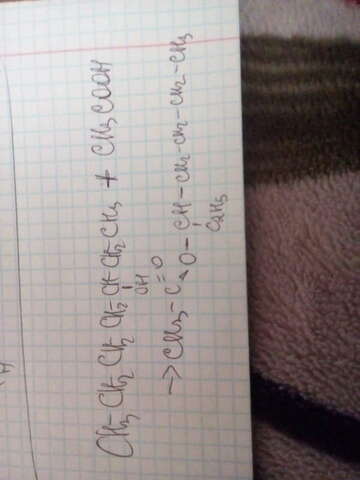 CH3-CH2 CH2 CH2 CH CH2 CH3 + CH3COOH
OH
→ CH3-C=O
O-CH-CH2-CH2-CH2-CH3
C2H5